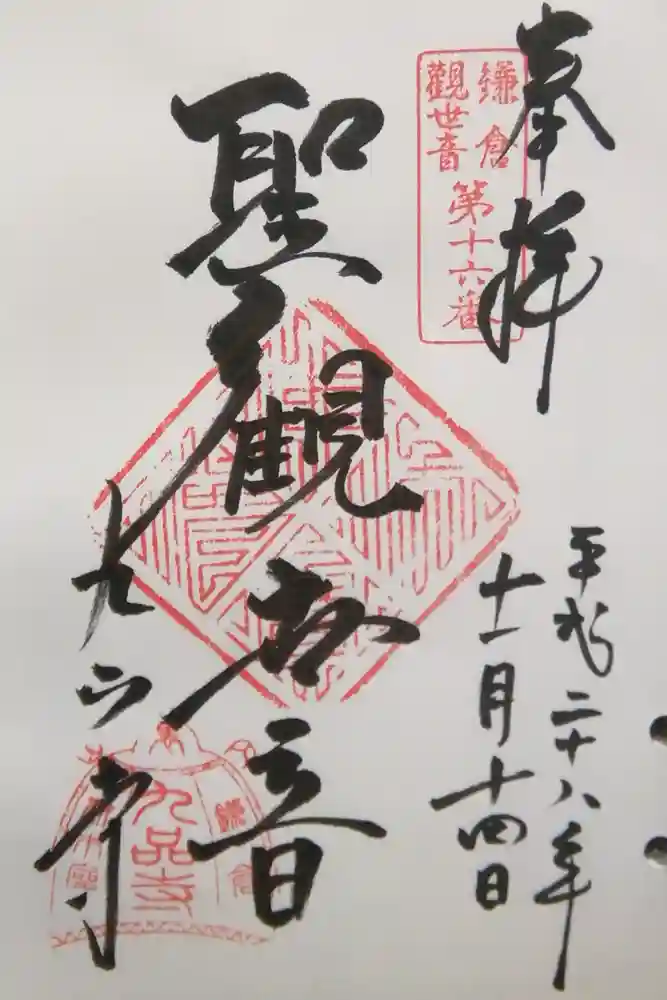 奉拝
鎌倉
觀世音
第十六番
平成二十八年
十一月十四日
聖觀世音
九品寺
九品寺